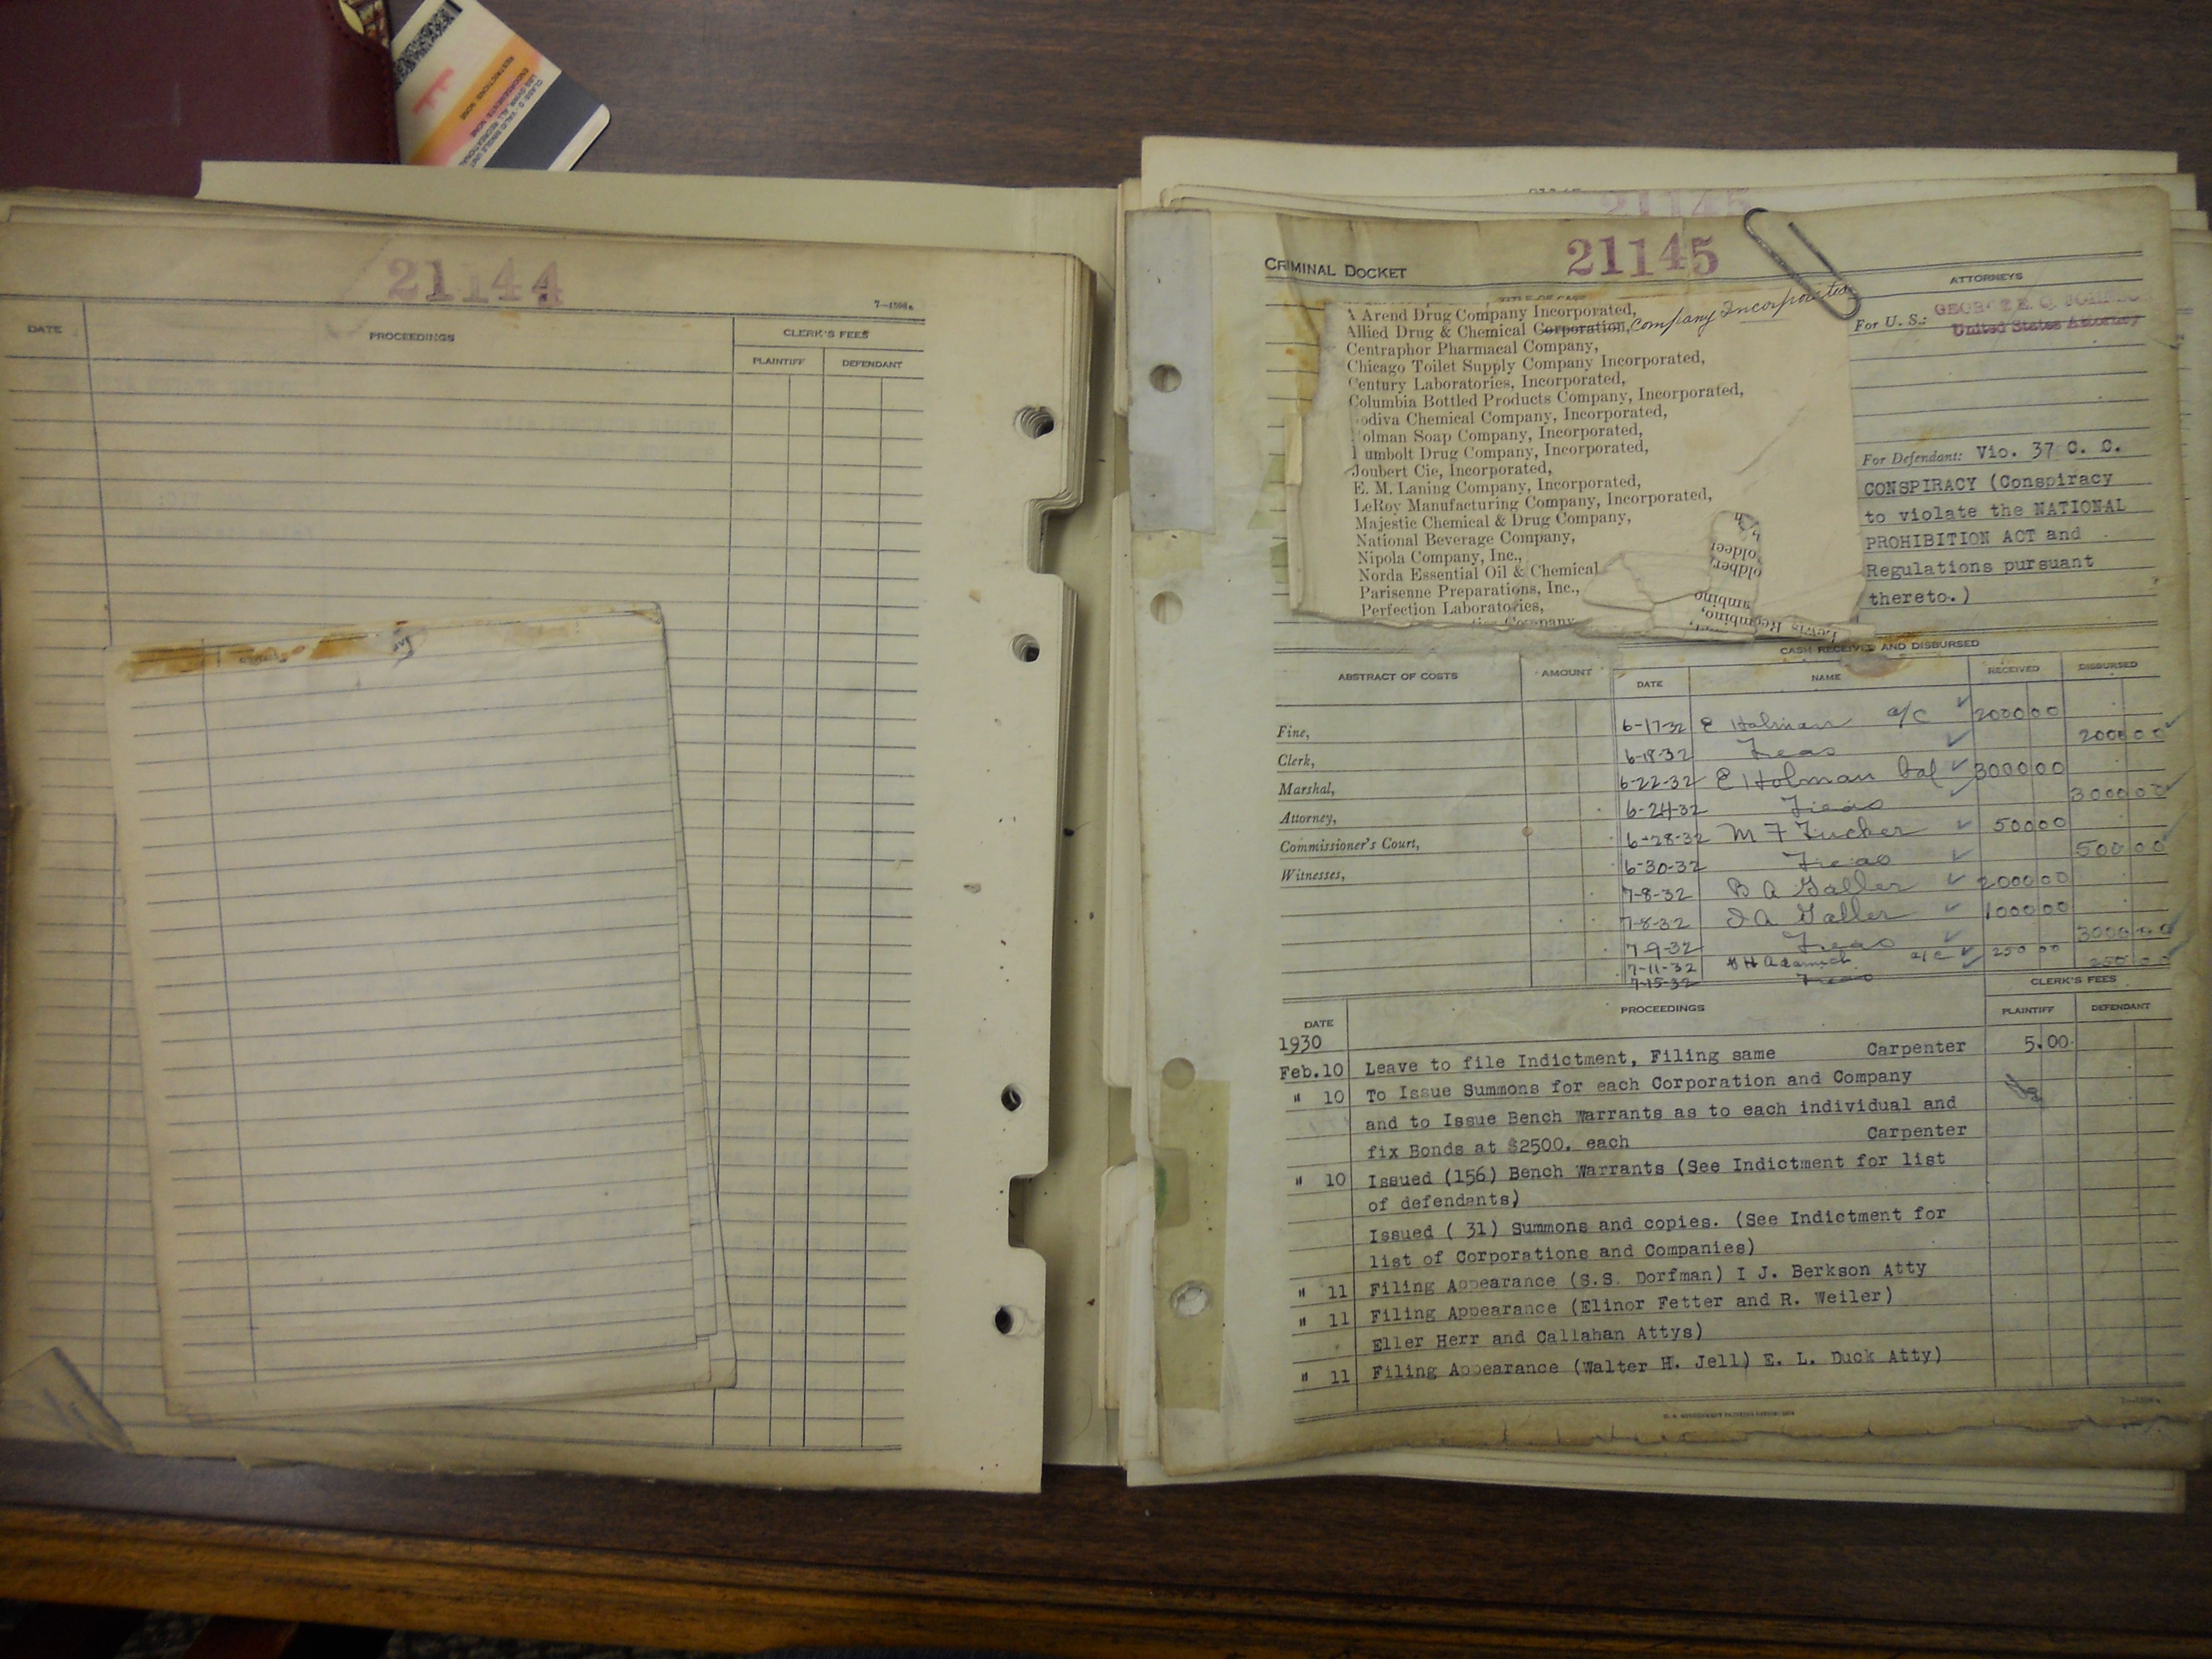 CLASS: D VALID SINGLE UNIT
LBS GVWR. ALL RECREATIONAL
ENDORSEMENTS: NONE
RESTRICTIONS: NONE
21144
7—1598a
DATE PROCEEDINGS CLERK'S FEES
PLAINTIFF DEFENDANT
21145
CRIMINAL DOCKET 21145
TITLE OF CASE
ATTORNEYS
A Arend Drug Company Incorporated,
Allied Drug & Chemical Corporation, Company Incorporated
Centraphor Pharmacal Company,
Chicago Toilet Supply Company Incorporated,
Century Laboratories, Incorporated,
Columbia Bottled Products Company, Incorporated,
odiva Chemical Company, Incorporated,
olman Soap Company, Incorporated,
umbolt Drug Company, Incorporated,
Joubert Cie, Incorporated,
E. M. Laning Company, Incorporated,
LeRoy Manufacturing Company, Incorporated,
Majestic Chemical & Drug Company,
National Beverage Company,
Nipola Company, Inc.,
Norda Essential Oil & Chemical
Parisenne Preparations, Inc.,
Perfection Laboratories,
Company
For U. S.: GEORGE E. Q.
United States Attorney
For Defendant: Vio. 37 C. C.
CONSPIRACY (Conspiracy
to violate the NATIONAL
PROHIBITION ACT and
Regulations pursuant
thereto.)
CASH RECEIVED AND DISBURSED
ABSTRACT OF COSTS AMOUNT DATE NAME RECEIVED DISBURSED
Fine,
Clerk,
Marshal,
Attorney,
Commissioner's Court,
Witnesses,
6-17-32 E Holman a/c 2000 00
6-18-32 Treas 2000 00
6-22-32 E Holman Bal 3000 00
6-24-32 Treas 3000 00
6-28-32 M F Tucker 500 00
6-30-32 Treas 500 00
7-8-32 B A Galler 2000 00
7-8-32 I A Galler 1000 00
7-9-32 Treas 3000 00
7-11-32 a/c 250 00
7-15-32 Treas 250 00
DATE PROCEEDINGS CLERK'S FEES
PLAINTIFF DEFENDANT
1930
Feb.10 Leave to file Indictment, Filing same Carpenter 5.00
" 10 To Issue Summons for each Corporation and Company
and to Issue Bench Warrants as to each individual and
fix Bonds at $2500. each Carpenter
" 10 Issued (156) Bench Warrants (See Indictment for list
of defendants)
Issued ( 31) Summons and copies. (See Indictment for
list of Corporations and Companies)
" 11 Filing Appearance (S.S. Dorfman) I J. Berkson Atty
" 11 Filing Appearance (Elinor Fetter and R. Weiler)
Eller Herr and Callahan Attys)
" 11 Filing Appearance (Walter H. Jell) E. L. Duck Atty)